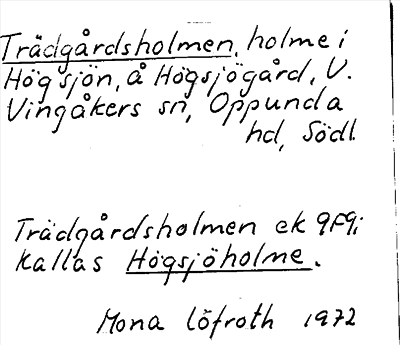 Trädgårdsholmen, holme i
Högsjön, å Högsjögård, V.
Vingåkers sn, Oppunda
hd, Södl.
Trädgårdsholmen ek 9F9i
kallas Högsjöholme.
Mona Löfroth 1972